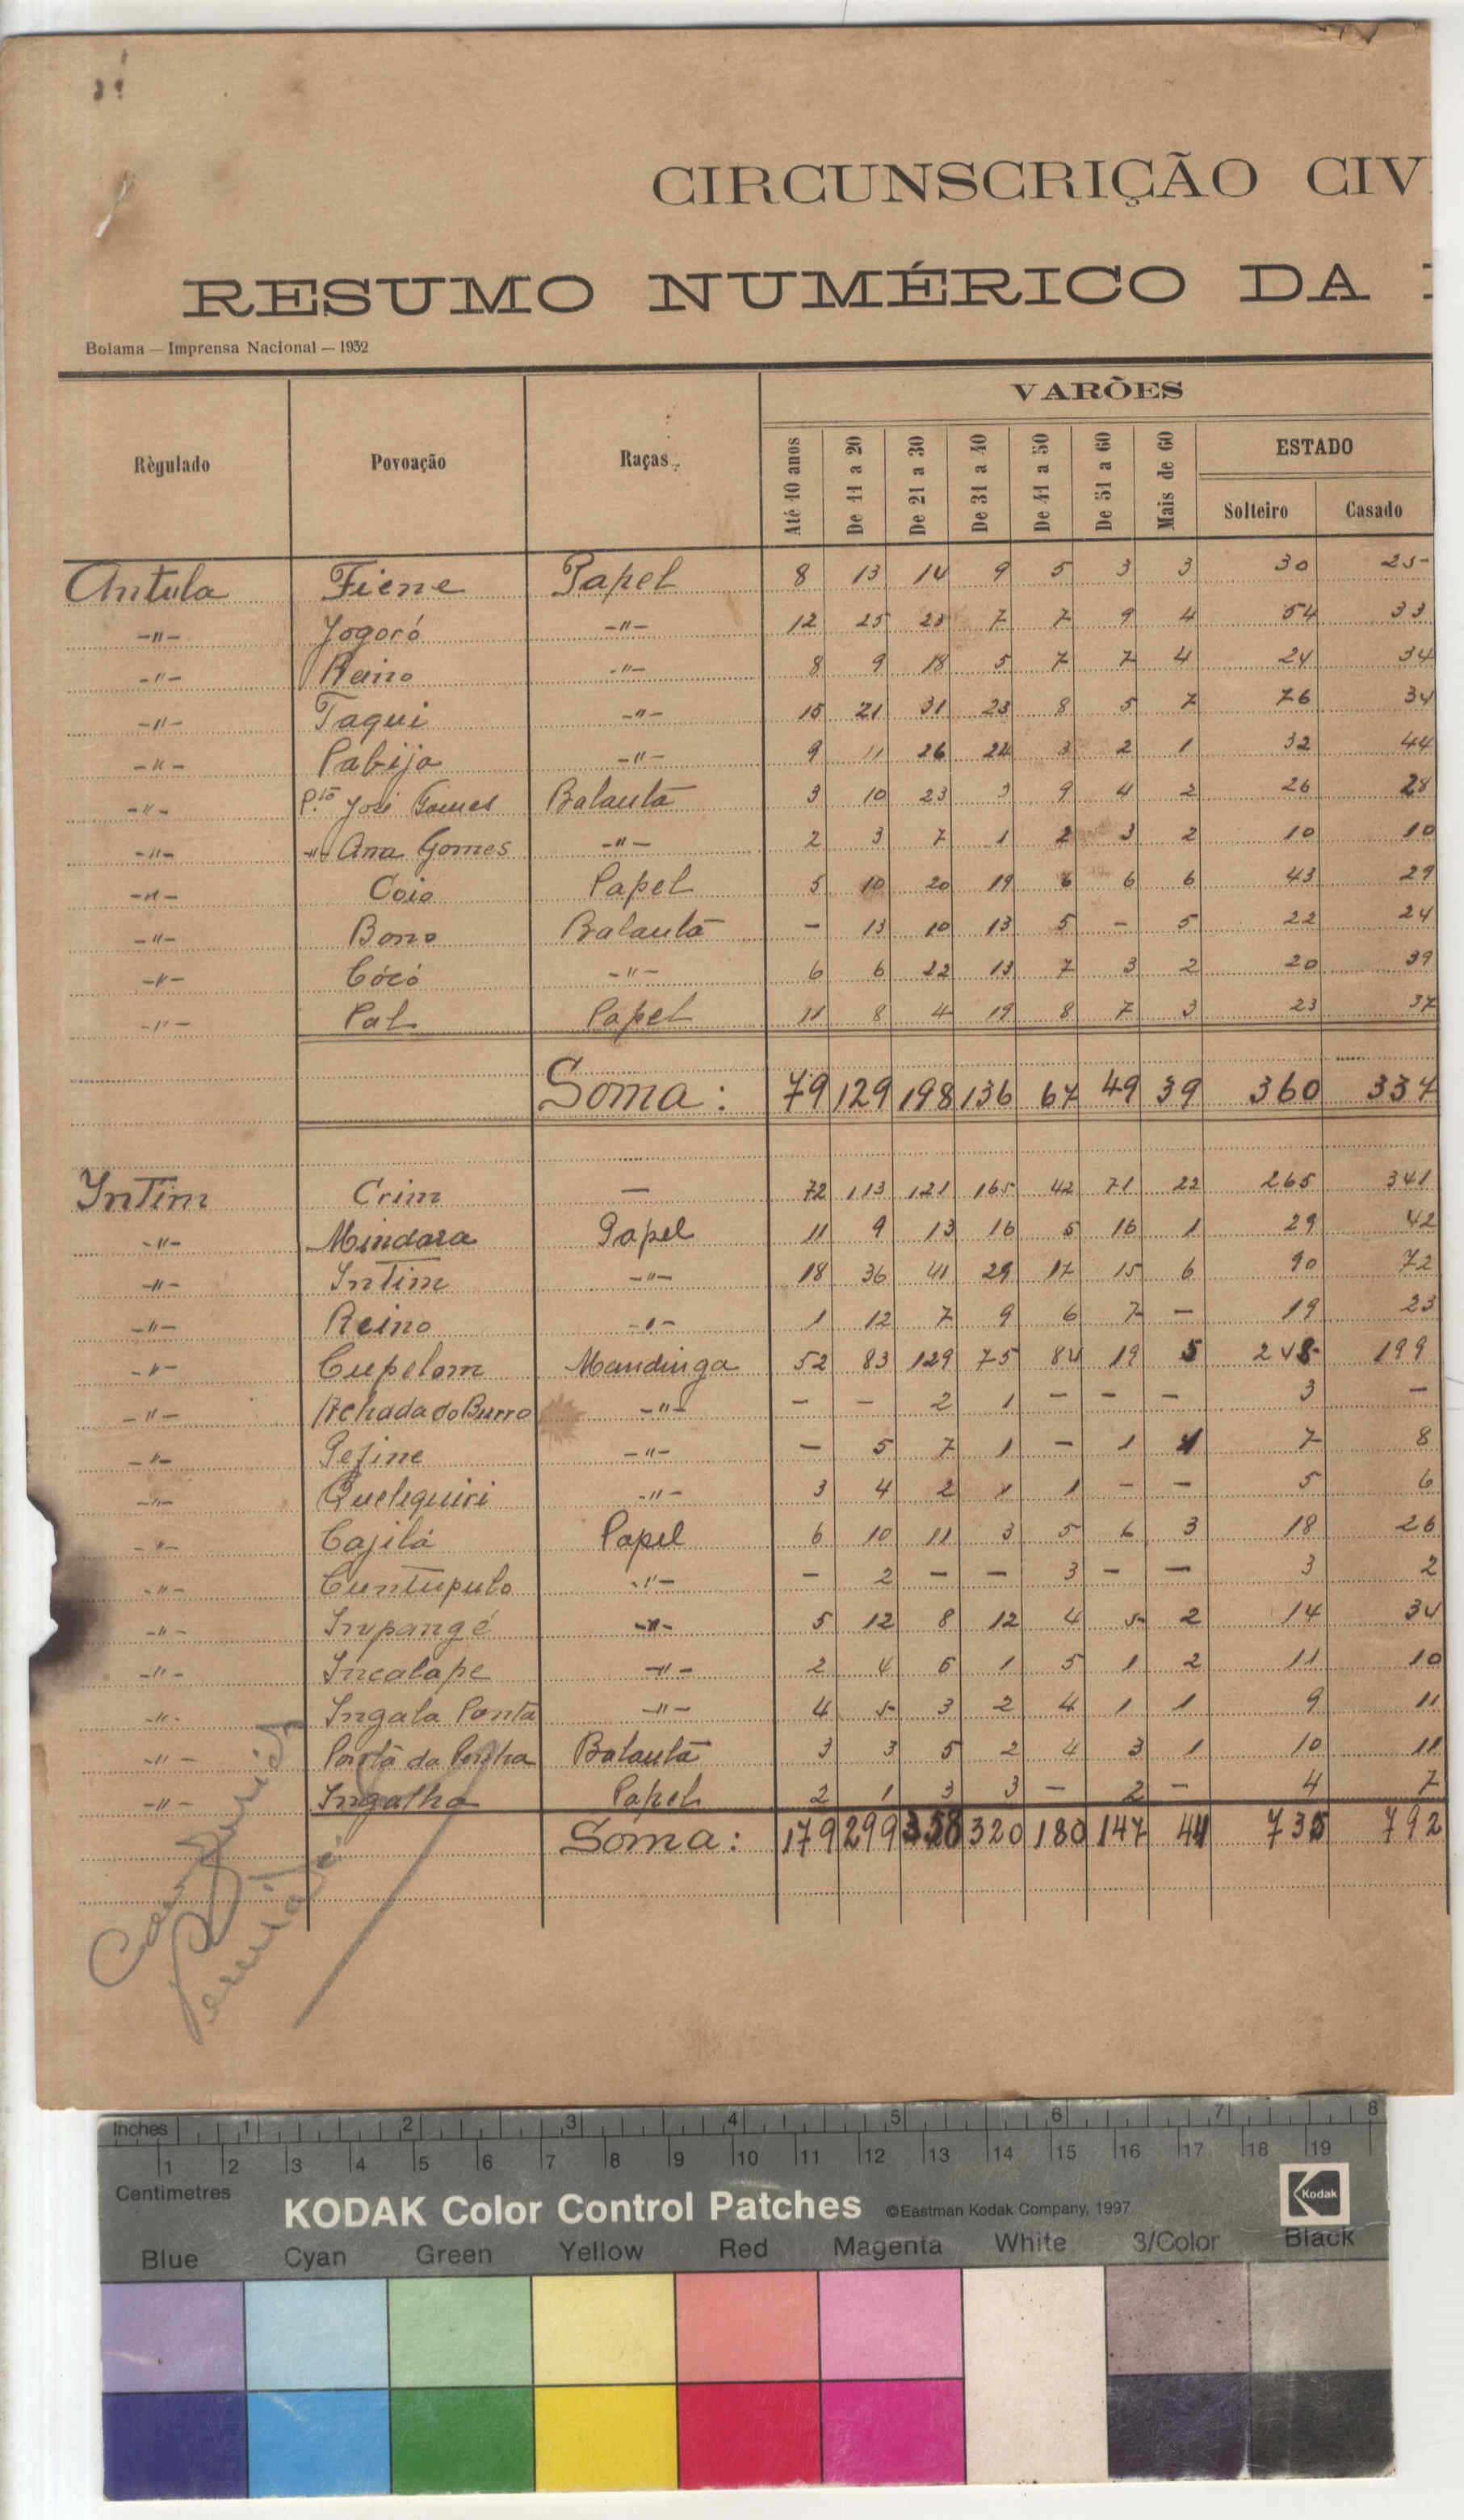 CIRCUNSCRIÇÃO CIV
RESUMO NUMÉRICO DA
Bolama — Imprensa Nacional — 1932
Règulado Povoação Raças VARÕES
Até 10 anos De 11 a 20 De 21 a 30 De 31 a 40 De 41 a 50 De 51 a 60 Mais de 60 ESTADO
Solteiro Casado
Antula Fiene Papel 8 13 14 9 5 3 3 30 25
-"- Jogoró -"- 12 25 23 7 7 9 4 54 33
-"- Reino -"- 8 9 18 5 7 7 4 24 34
-"- Taqui -"- 15 21 31 23 8 5 7 76 34
-"- Pabijo -"- 9 11 26 24 3 2 1 32 44
-"- P.ta José Gomes Balanta 3 10 23 3 9 4 2 26 28
-"- -"- Ana Gomes -"- 2 3 7 1 2 3 2 10 10
-"- Coio Papel 5 10 20 19 6 6 6 43 29
-"- Bono Balanta - 13 10 13 5 - 5 22 24
-"- Cócó -"- 6 6 22 13 7 3 2 20 39
-"- Pal Papel 11 8 4 19 8 7 3 23 37
Soma: 79 129 198 136 67 49 39 360 337
Intim Crim — 72 113 121 165 42 71 22 265 341
-"- Mindara Papel 11 9 13 16 5 16 1 29 42
-"- Intim -"- 18 36 41 29 17 15 6 90 72
-"- Reino -"- 1 12 7 9 6 7 - 19 23
-"- Cupelom Mandinga 52 83 129 75 84 19 5 248 199
-"- Achada do Burro -"- - - 2 1 - - - 3 -
-"- Pefine -"- - 5 7 1 - 1 1 7 8
-"- Quelequiri -"- 3 4 2 1 1 - - 5 6
-"- Cajilá Papel 6 10 11 3 5 6 3 18 26
-"- Cuntupulo -"- - 2 - - 3 - - 3 2
-"- Inpangé -"- 5 12 8 12 4 5 2 14 34
-"- Incalape -"- 2 4 6 1 5 1 2 11 10
-"- Ingala Ponta -"- 4 5 3 2 4 1 1 9 11
-"- Ponta da Penha Balanta 3 3 5 2 4 3 1 10 11
-"- Ingalha Papel 2 1 3 3 - 2 - 4 7
Soma: 179 299 358 320 180 147 44 735 792
Inches 1 2 3 4 5 6 7 8
1 2 3 4 5 6 7 8 9 10 11 12 13 14 15 16 17 18 19
Centimetres
KODAK Color Control Patches ©Eastman Kodak Company, 1997 Kodak
Blue Cyan Green Yellow Red Magenta White 3/Color Black